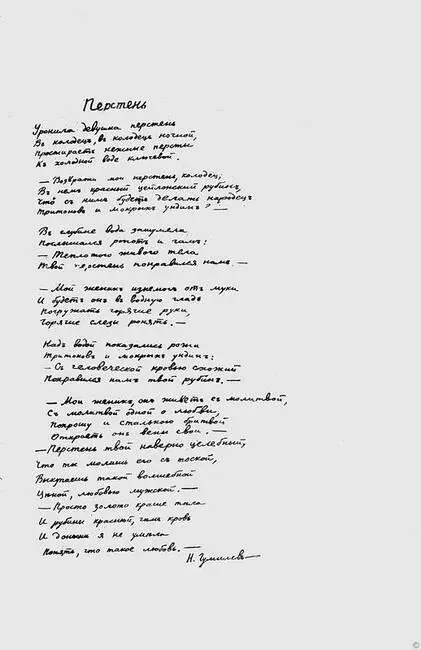 Перстень
Уронила девушка перстень
Въ колодецъ, въ колодецъ ночной,
Простираетъ нежные персты
Къ холодной воде ключевой.
— Возврати мой перстень, колодец;
Въ немъ красный цейлонский рубинъ,
Что съ нимъ будетъ делать народецъ
Тритоновъ и мокрыхъ ундинъ? —
Въ глубине вода зашумела
Послышался ропотъ и гамъ:
— Теплотою живого тела
Твой перстень понравился намъ. —
— Мой женихъ изнемогъ отъ муки
И будетъ онъ въ водную гладь
Погружать горячие руки,
Горячие слезы ронять. —
Надъ водой показались рожи
Тритоновъ и мокрыхъ ундинъ:
— Съ человеческой кровью схожий
Понравился намъ твой рубинъ. —
— Мой женихъ, онъ живетъ съ молитвой,
Съ молитвой одной о любви,
Попрошу и стальною бритвой
Откроетъ онъ вены свои. —
— Перстень твой наверно целебный,
Что ты молишь его съ тоской,
Выкупаешь такой волшебной
Ценой, любовью мужской. —
— Просто золото краше тела
И рубины красней, чемъ кровь
И доныне я не умела
Понять, что такое любовь. —
Н. Гумилевъ
©